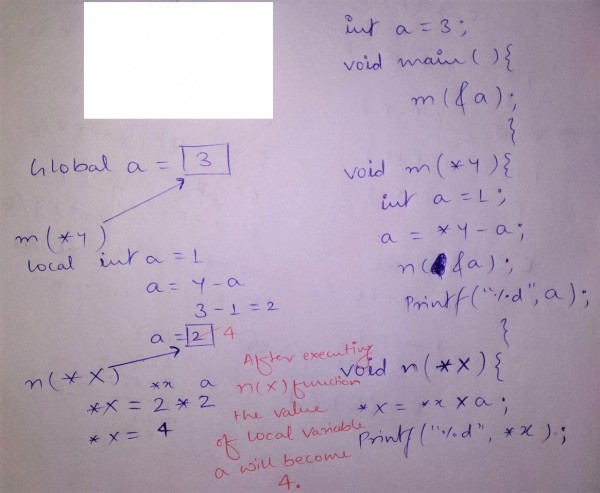 int a = 3;
void main( ){
m(&a);
}
void m(*y){
int a = 1;
a = *y - a;
n(&a);
Printf("%d", a);
}
void n(*x){
*x = *x x a;
Printf("%d", *x);
Global a = 3
m(*y)
local int a = 1
a = y - a
3 - 1 = 2
a = 2 4
n(*x)
*x a
*x = 2 * 2
*x = 4
After executing
n(x) function
the value
of local variable
a will become
4.